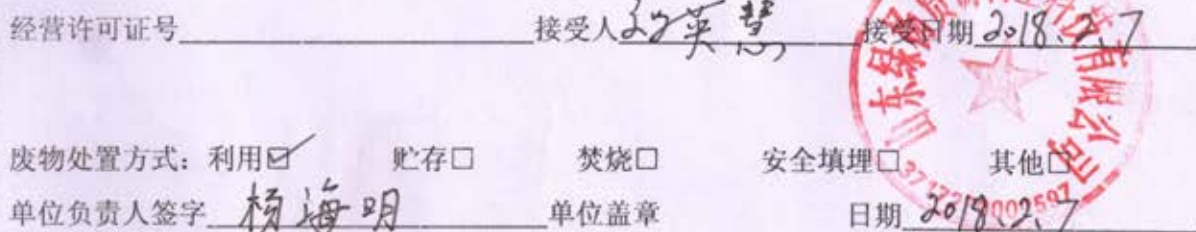 经营许可证号 接受人 英慧 接受日期 2018.2.7
废物处置方式：利用☑ 贮存□ 焚烧□ 安全填埋□ 其他□
单位负责人签字 杨海明 单位盖章 日期 2018.2.7
山东绿 质 科技有限公司